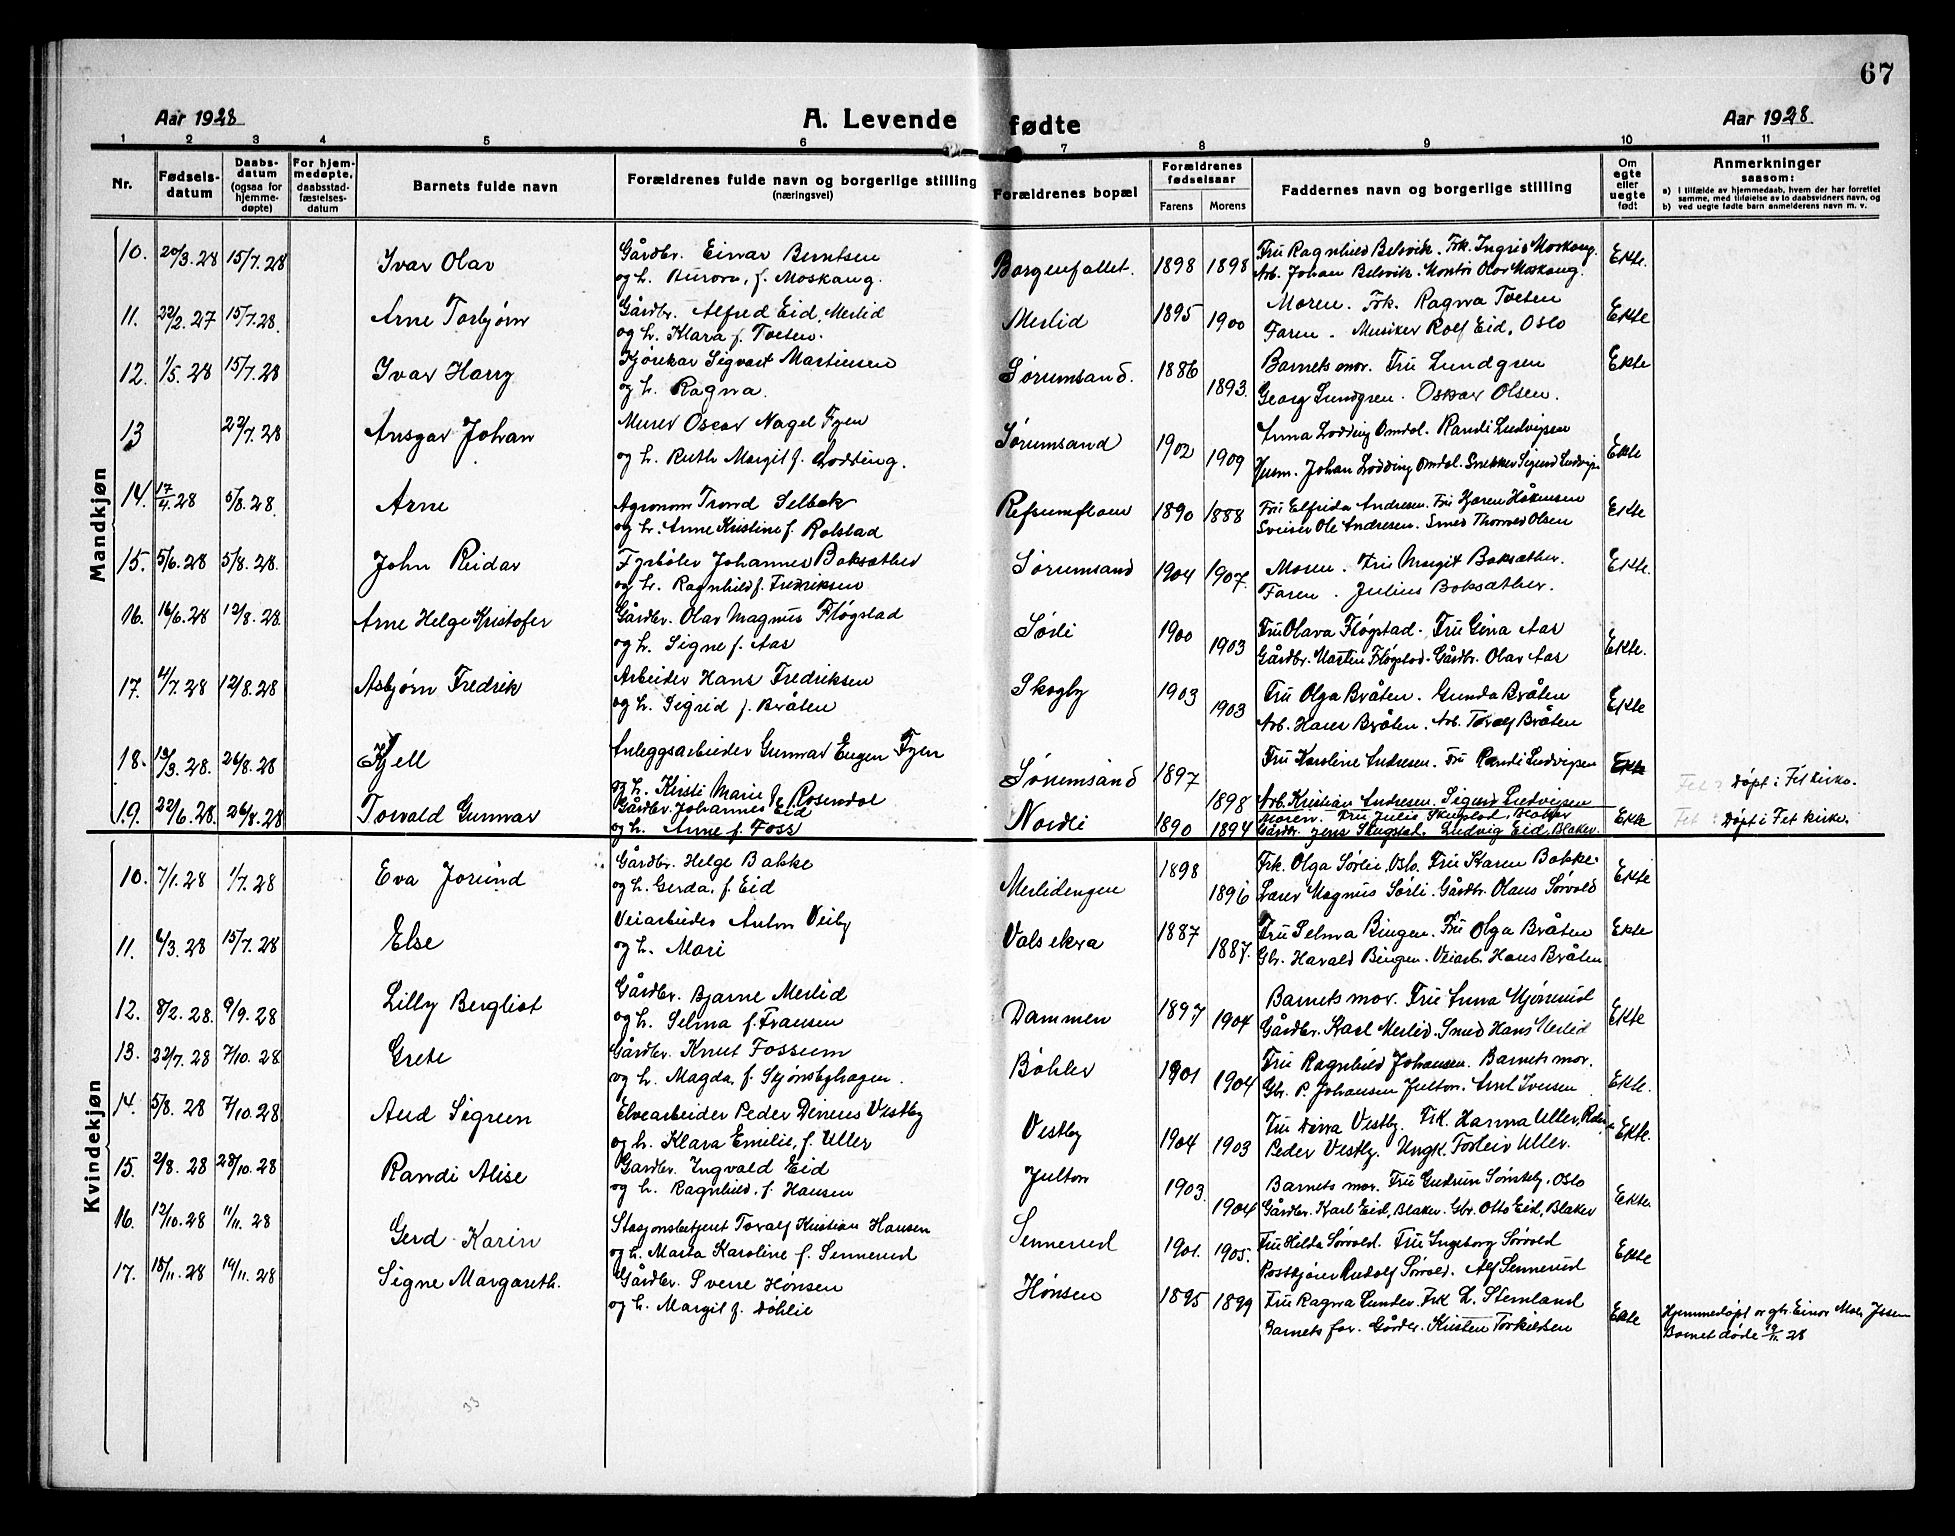 67
Aar 1928 A. Levende fødte Aar 1928
1 2 3 4 5 6 7 8 9 10 11
Nr. Fødsels-datum Daabs-datum (ogsaa for hjemme-døpte) For hjem-medøpte, daabsstad-fæstelses-datum Barnets fulde navn Forældrenes fulde navn og borgerlige stilling (næringsvei) Forældrenes bopæl Forældrenes fødselsaar Farens Morens Faddernes navn og borgerlige stilling Om egte eller uegte født Anmerkninger saasom:
a) I tilfælde av hjemmedaab, hvem der har forrettet samme, med tilføielse av to daabsvidners navn, og
b) ved uegte fødte barn anmelderens navn m. v.
Mandkjøn
10. 20/3. 28 15/7. 28 Ivar Olav Gårdbr. Einar Berntsen Borgenfallet. 1898 1898 Fru Ragnhild Belsvik. Frk. Ingrid Moskaug. Ekte.
og h. Aurora, f. Moskaug. Arb. Johan Belsvik. Montør Olav Moskaug.
11. 22/2. 27 15/7. 28. Arne Torbjørn Gårdbr. Alfred Eid, Merlid Merlid 1895 1900 Moren. Frk. Ragna Tveten Ekte
og h. Klara f. Tveten. Faren. Musiker Rolf Eid, Oslo
12. 1/5. 28 15/7. 28 Ivar Harry Kjørekar Sigvart Martinsen Sørumsand. 1886 1893. Barnets mor. Fru Lundgren Ekte
og h. Ragna. Georg Lundgren. Oskar Olsen.
13 22/7. 28 Ansgar Johan Murer Oscar Nagel Fyen Sørumsand 1902 1909 Anna Lodding Omdal. Randi Ludvigsen Ekte
og h. Ruth Margit f. Lodding. Husm. Johan Lodding Omdal. Snekker Sigurd Ludvigs
14. 17/4. 28 5/8. 28. Arne Agronom Trond Selbak Refsumfloen 1890 1888 Fru Elfrida Andresen. Fru Karen Håkensen Ekte
og h. Anne Kristine f. Rolstad Sveiser Ole Andresen. Smed Thorvald Olsen
15. 5/6. 28 5/8. 28. John Reidar Fyrbøter Johannes Boksæther Sørumsand 1904 1907. Moren. Fru Margit Boksæther. Ekte.
og h. Ragnhild f. Fredriksen Faren. Julius Boksæther.
16. 16/6. 28 12/8. 28. Arne Helge Kristofer Gårdbr. Olav Magnus Fløgstad Sørli 1900 1903 Fru Olava Fløgstad. Fru Gina Aas Ekte.
og h. Signe f. Aas Gårdbr. Martin Fløgstad. Gårdbr. Olav Aas
17. 4/7. 28 12/8. 28 Asbjørn Fredrik Arbeider Hans Fredriksen Skogby 1903 1903 Fru Olga Bråten. Gunda Bråten Ekte
og h. Sigrid f. Bråten Arb. Hans Bråten. Arb. Toralf Bråten
18. 19/3. 28. 26/8. 28 Kjell Anleggsarbeider Gunnar Eugen Fyen Sørumsand 1897 1898 Fru Karoline Andresen. Fru Randi Ludvigsen Ekte Døpt i Fet kirke.
og h. Kirsti Marie f. Rosendal Arb. Kristian Andresen. Sigurd Ludvigsen
19. 22/6. 28. 26/8. 28 Torvald Gunnar Gårdbr. Johannes Eid Nordli 1890 1894 Moren. Fru Julie Skugstad, Blaker Ekte Døpt i Fet kirke.
og h. Anne f. Foss Gårdbr. Jens Skugstad. Ludvig Eid, Blaker.
Kvindekjøn
10. 7/1. 28 1/7. 28 Eva Jorund Gårdbr. Helge Bakke Merlidengen 1898 1896 Frk. Olga Sørlie, Oslo. Fru Karen Bakke. Ekte
og h. Gerda, f. Eid Magnus Sørli. Gårdbr. Olaus Sørvold
11. 6/3. 28 15/7. 28 Else Veiarbeider Anton Veiby Valsekra 1887 1887. Fru Selma Bingen. Fru Olga Bråten Ekte
og h. Mari Gbr. Harald Bingen. Veiarb. Hans Bråten.
12. 8/2. 28. 9/9. 28 Lilly Bergliot Gårdbr. Bjarne Merlid Dammen 1897 1904 Barnets mor. Fru Anna Mjønerud Ekte
og h. Selma f. Fransen Gårdbr. Karl Merlid. Smed Hans Merlid
13. 22/7. 28 7/10. 28 Grete Gårdbr. Knut Fossum Bøhler 1901 1904 Fru Ragnhild Johansen. Barnets mor. Ekte.
og h. Magda, f. Sjønsbyhagen. Gbr. P. Johansen Julton. Arnt Iversen
14. 5/8. 28 7/10. 28 Aud Sigrun Elvearbeider Peder Dinius Vestby Vestby 1904 1903 Fru Dina Vestby. Frk. Hanna Uller, Ekte.
og h. Klara Emilie, f. Uller Peder Vestby. Ungk. Torleiv Uller.
15. 2/8. 28 28/10. 28 Randi Alise Gårdbr. Ingvald Eid Julton 1903. 1904 Barnets mor. Fru Gudrun Sønsteby. Oslo Ekte.
og h. Ragnhild, f. Hansen Gårdbr. Karl Eid, Blaker. Gbr. Otto Eid, Blaker
16. 12/10. 28 11/11. 28 Gerd Karin Stasjonsbetjent Toralf Kristian Hansen Sennerud 1901. 1905. Fru Hilda Sørvold. Fru Ingeborg Sørvold Ekte
og h. Marta Karoline f. Sennerud Postkjører Rudolf Sørvold. Alf Sennerud
17. 18/11. 28 19/11. 28 Signe Margareth. Gårdbr. Sverre Hønsen Hønsen 1895 1899 Fru Ragna Lunder. Frk. L. Stenland Ekte Hjemmedøpt av gbr. Einar Moe Jssen
og h. Margit f. Døhlie Barnets far. Gårdbr. Kristen Torkildsen Barnet døde 19/11 28
33